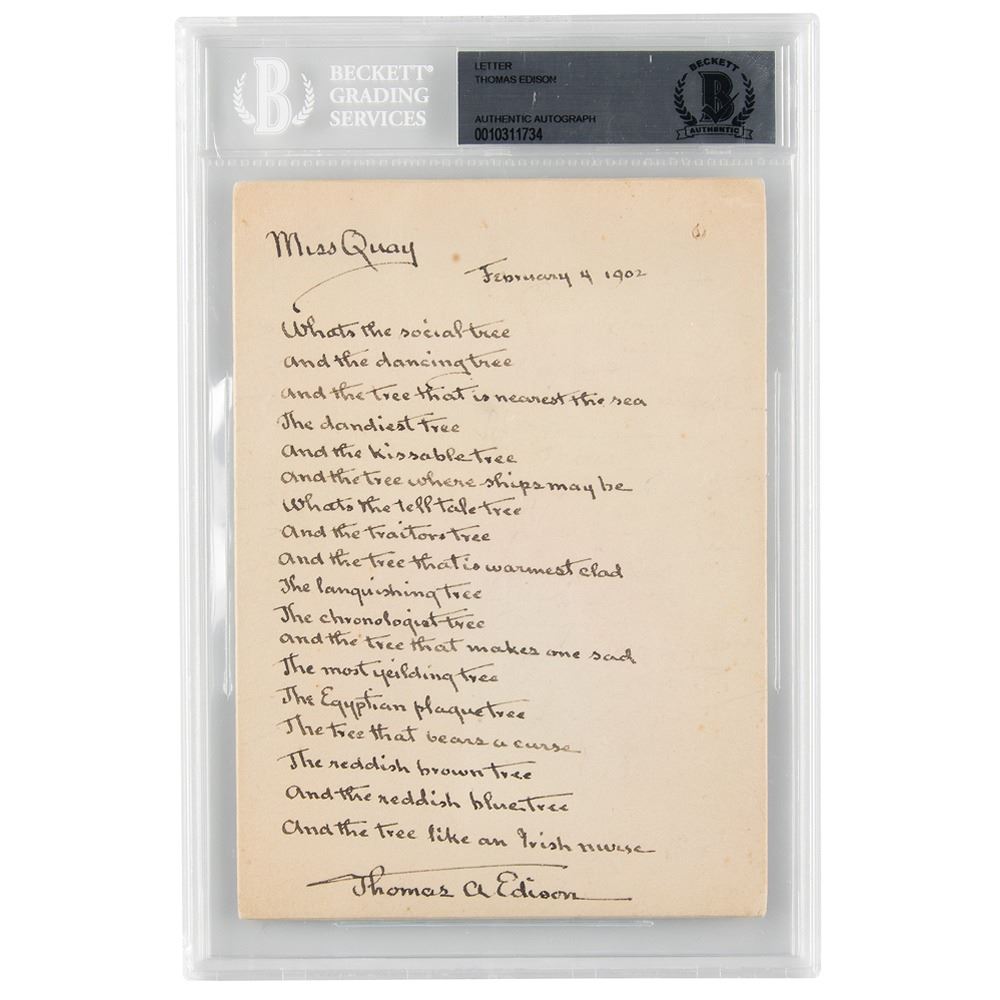 BECKETT®
GRADING
SERVICES
B
LETTER
THOMAS EDISON
AUTHENTIC AUTOGRAPH
0010311734
BECKETT
B
AUTHENTIC
Miss Quay
February 4 1902
Whats the social tree
And the dancing tree
And the tree that is nearest the sea
The dandiest tree
And the kissable tree
And the tree where ships may be
Whats the tell tale tree
And the traitors tree
And the tree that is warmest clad
The languishing tree
The chronologist tree
And the tree that makes one sad
The most yeilding tree
The Egyptian plaque tree
The tree that bears a curse
The reddish brown tree
And the reddish blue tree
And the tree like an Irish nurse
Thomas A Edison